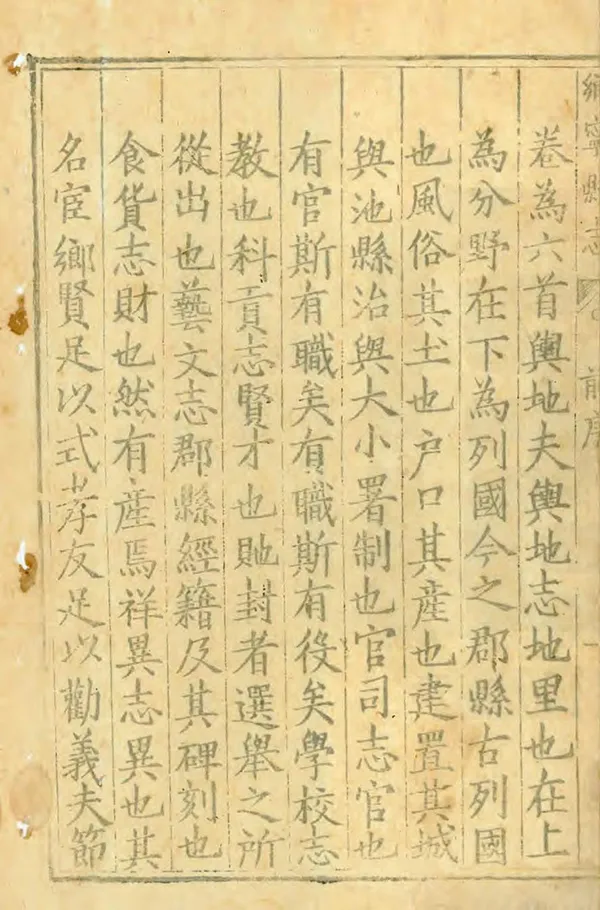 鄉寧縣志 前序
卷為六首輿地夫輿地志地里也在上
為分野在下為列國今之郡縣古列國
也風俗其土也户口其產也建置其城
與池縣治與大小署制也官司志官也
有官斯有職矣有職斯有役矣學校志
教也科貢志賢才也貤封者選舉之所
從出也藝文志郡縣經籍及其碑刻也
食貨志財也然有產焉祥異志異也其
名宦鄉賢足以式孝友足以勸義夫節